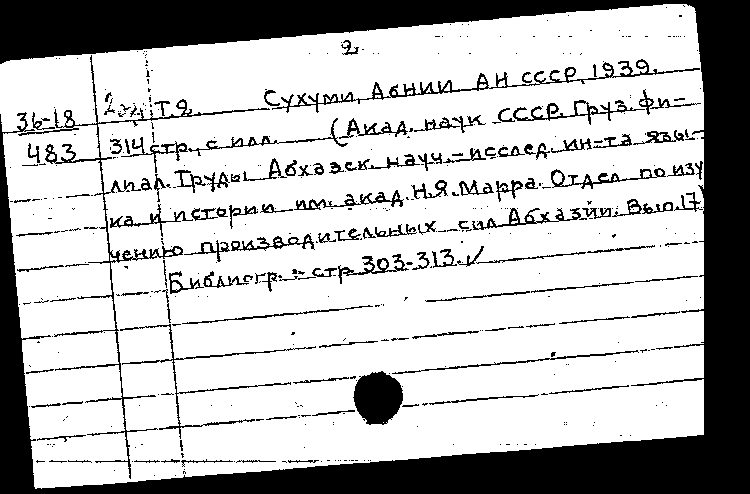 2.
36-18 Т.2. Сухуми, Абнии АН СССР, 1939.
483 314 стр., с илл. (Акад. наук СССР. Груз. фи-
лиал. Труды Абхазск. науч.-исслед. ин-та язы-
ка и истории им. акад. Н.Я. Марра. Отдел по изу
чению производительных сил Абхазии. Вып. 17)
Библиогр.: стр 303-313.✓